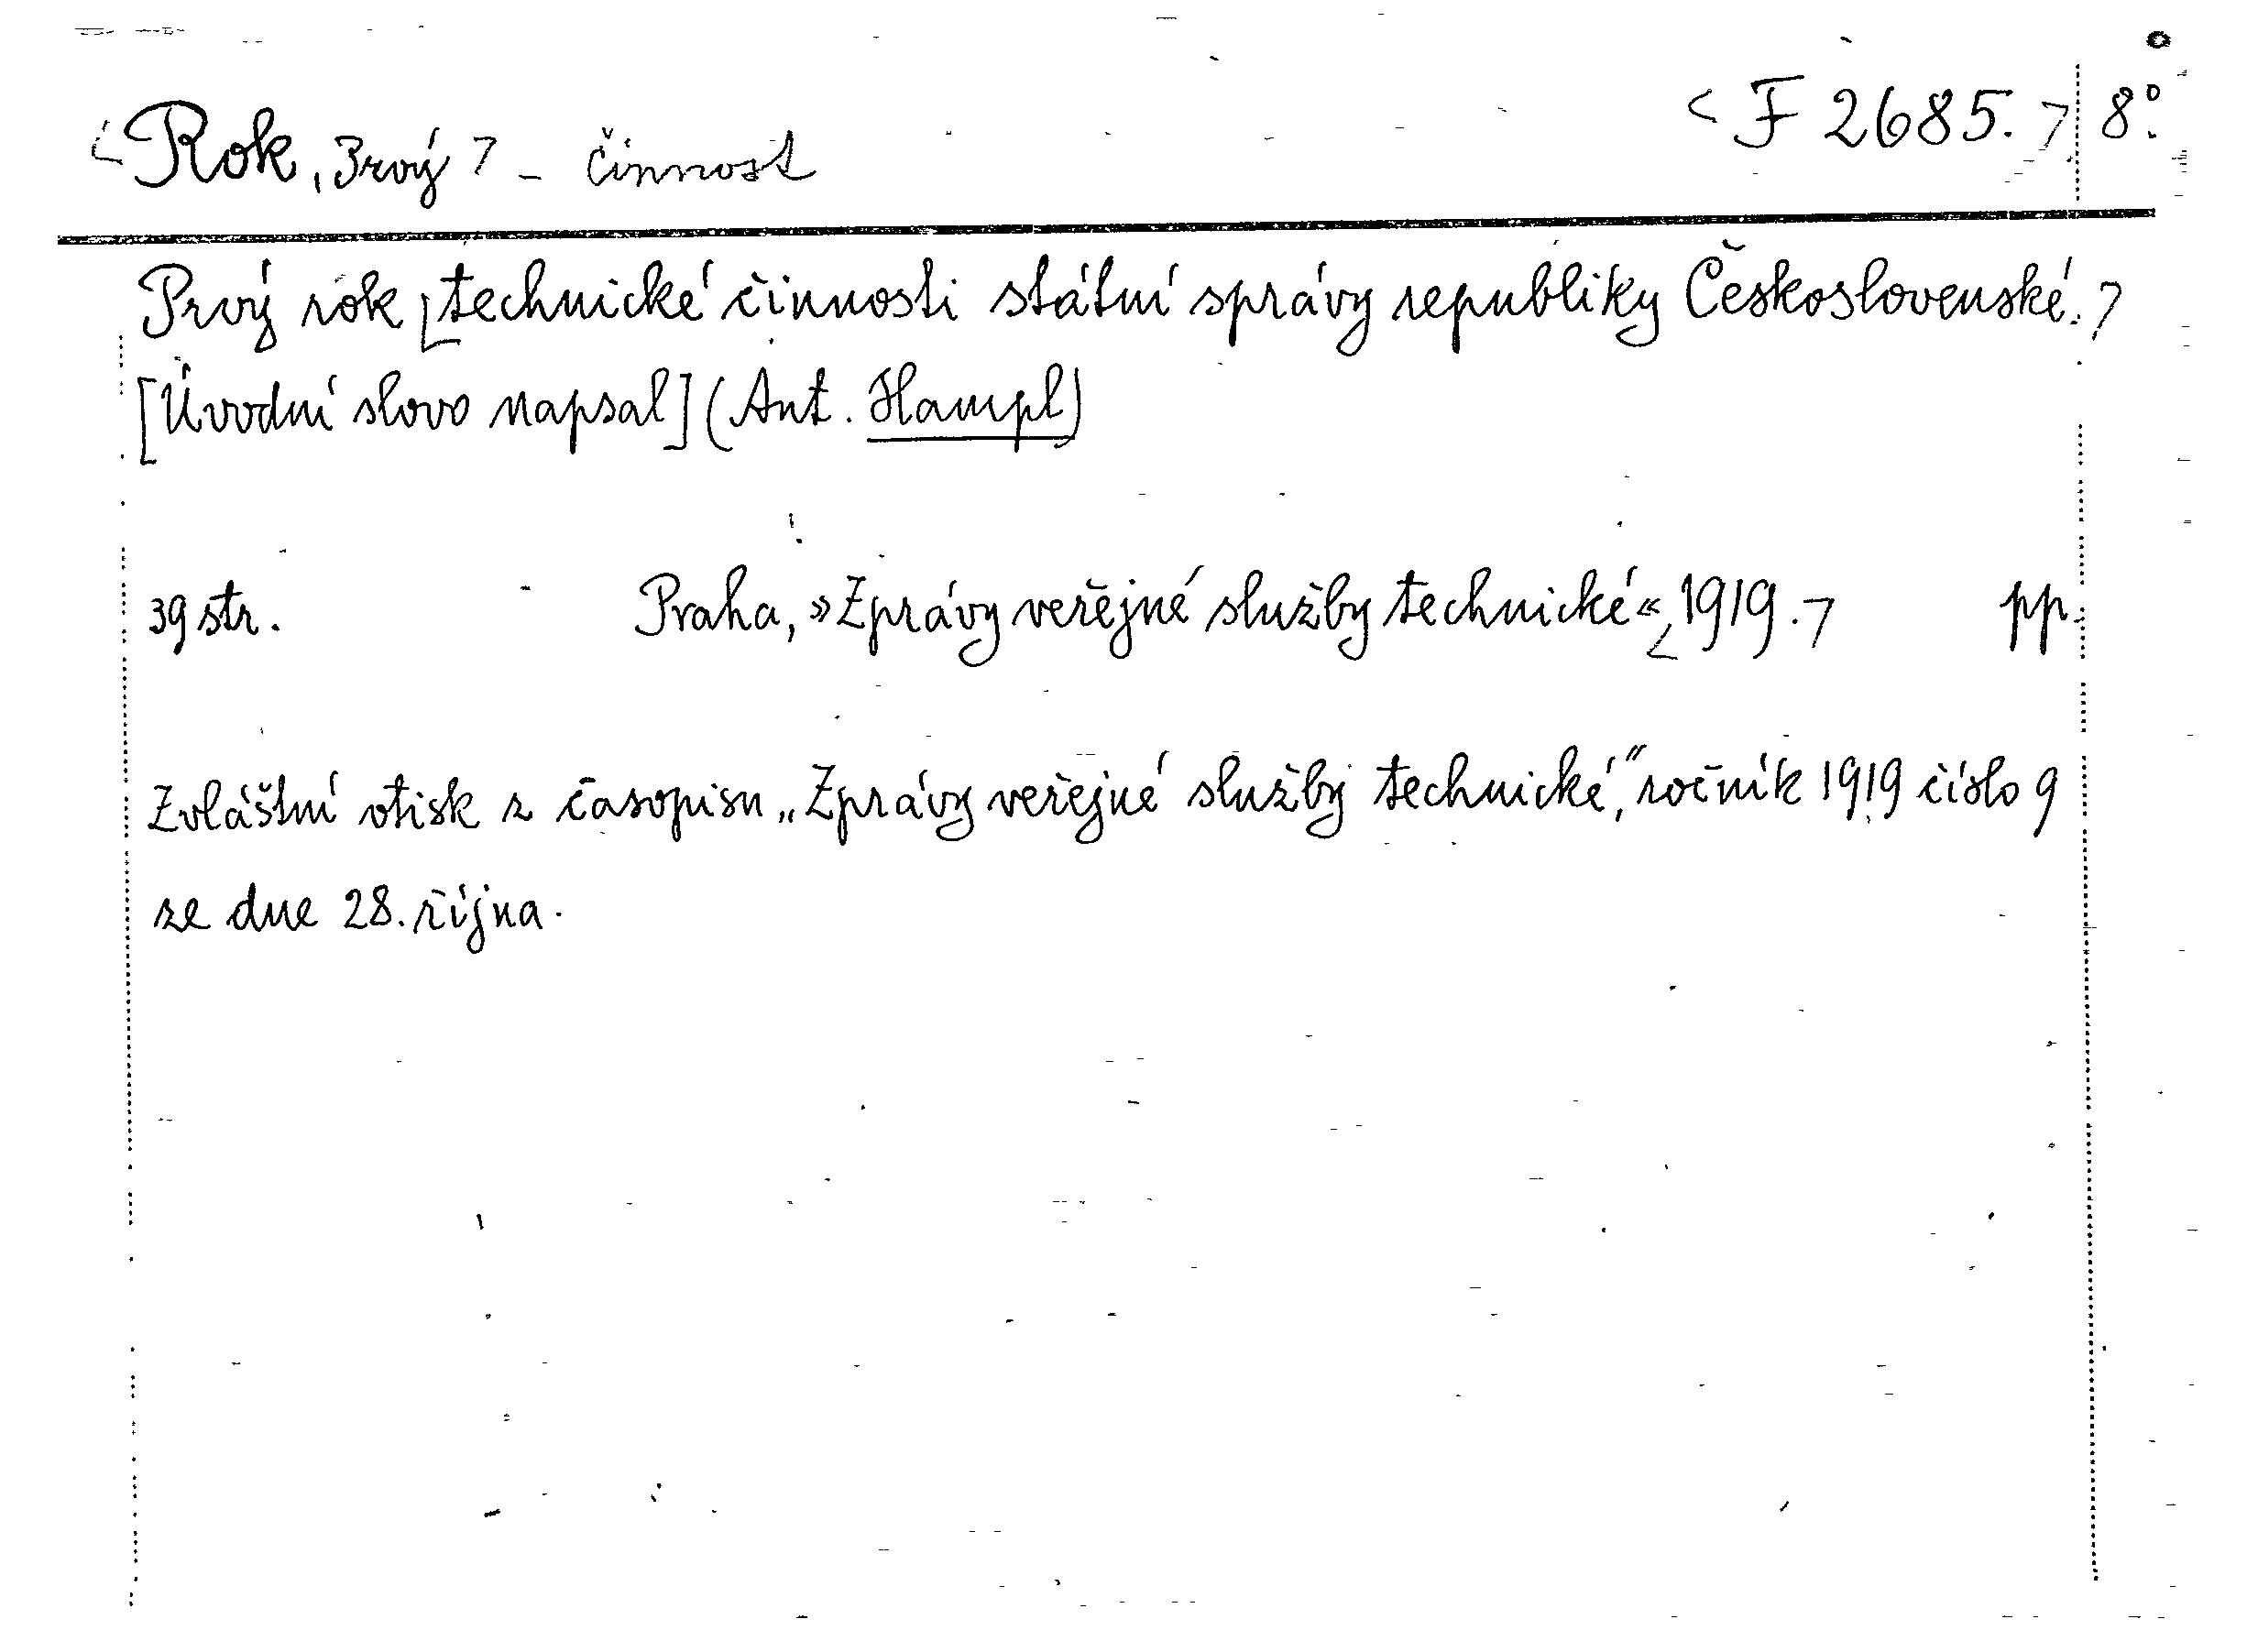 Rok, Prvý - činnost F 2685. 8°.
Prvý rok technické činnosti státní správy republiky Československé.
[Úvodní slovo napsal] (Ant. Hampl)
39 str. Praha, »Zprávy veřejné služby technické« 1919. pp.
Zvláštní otisk z časopisu „Zprávy veřejné služby technické,“ ročník 1919 číslo 9
ze dne 28. října.